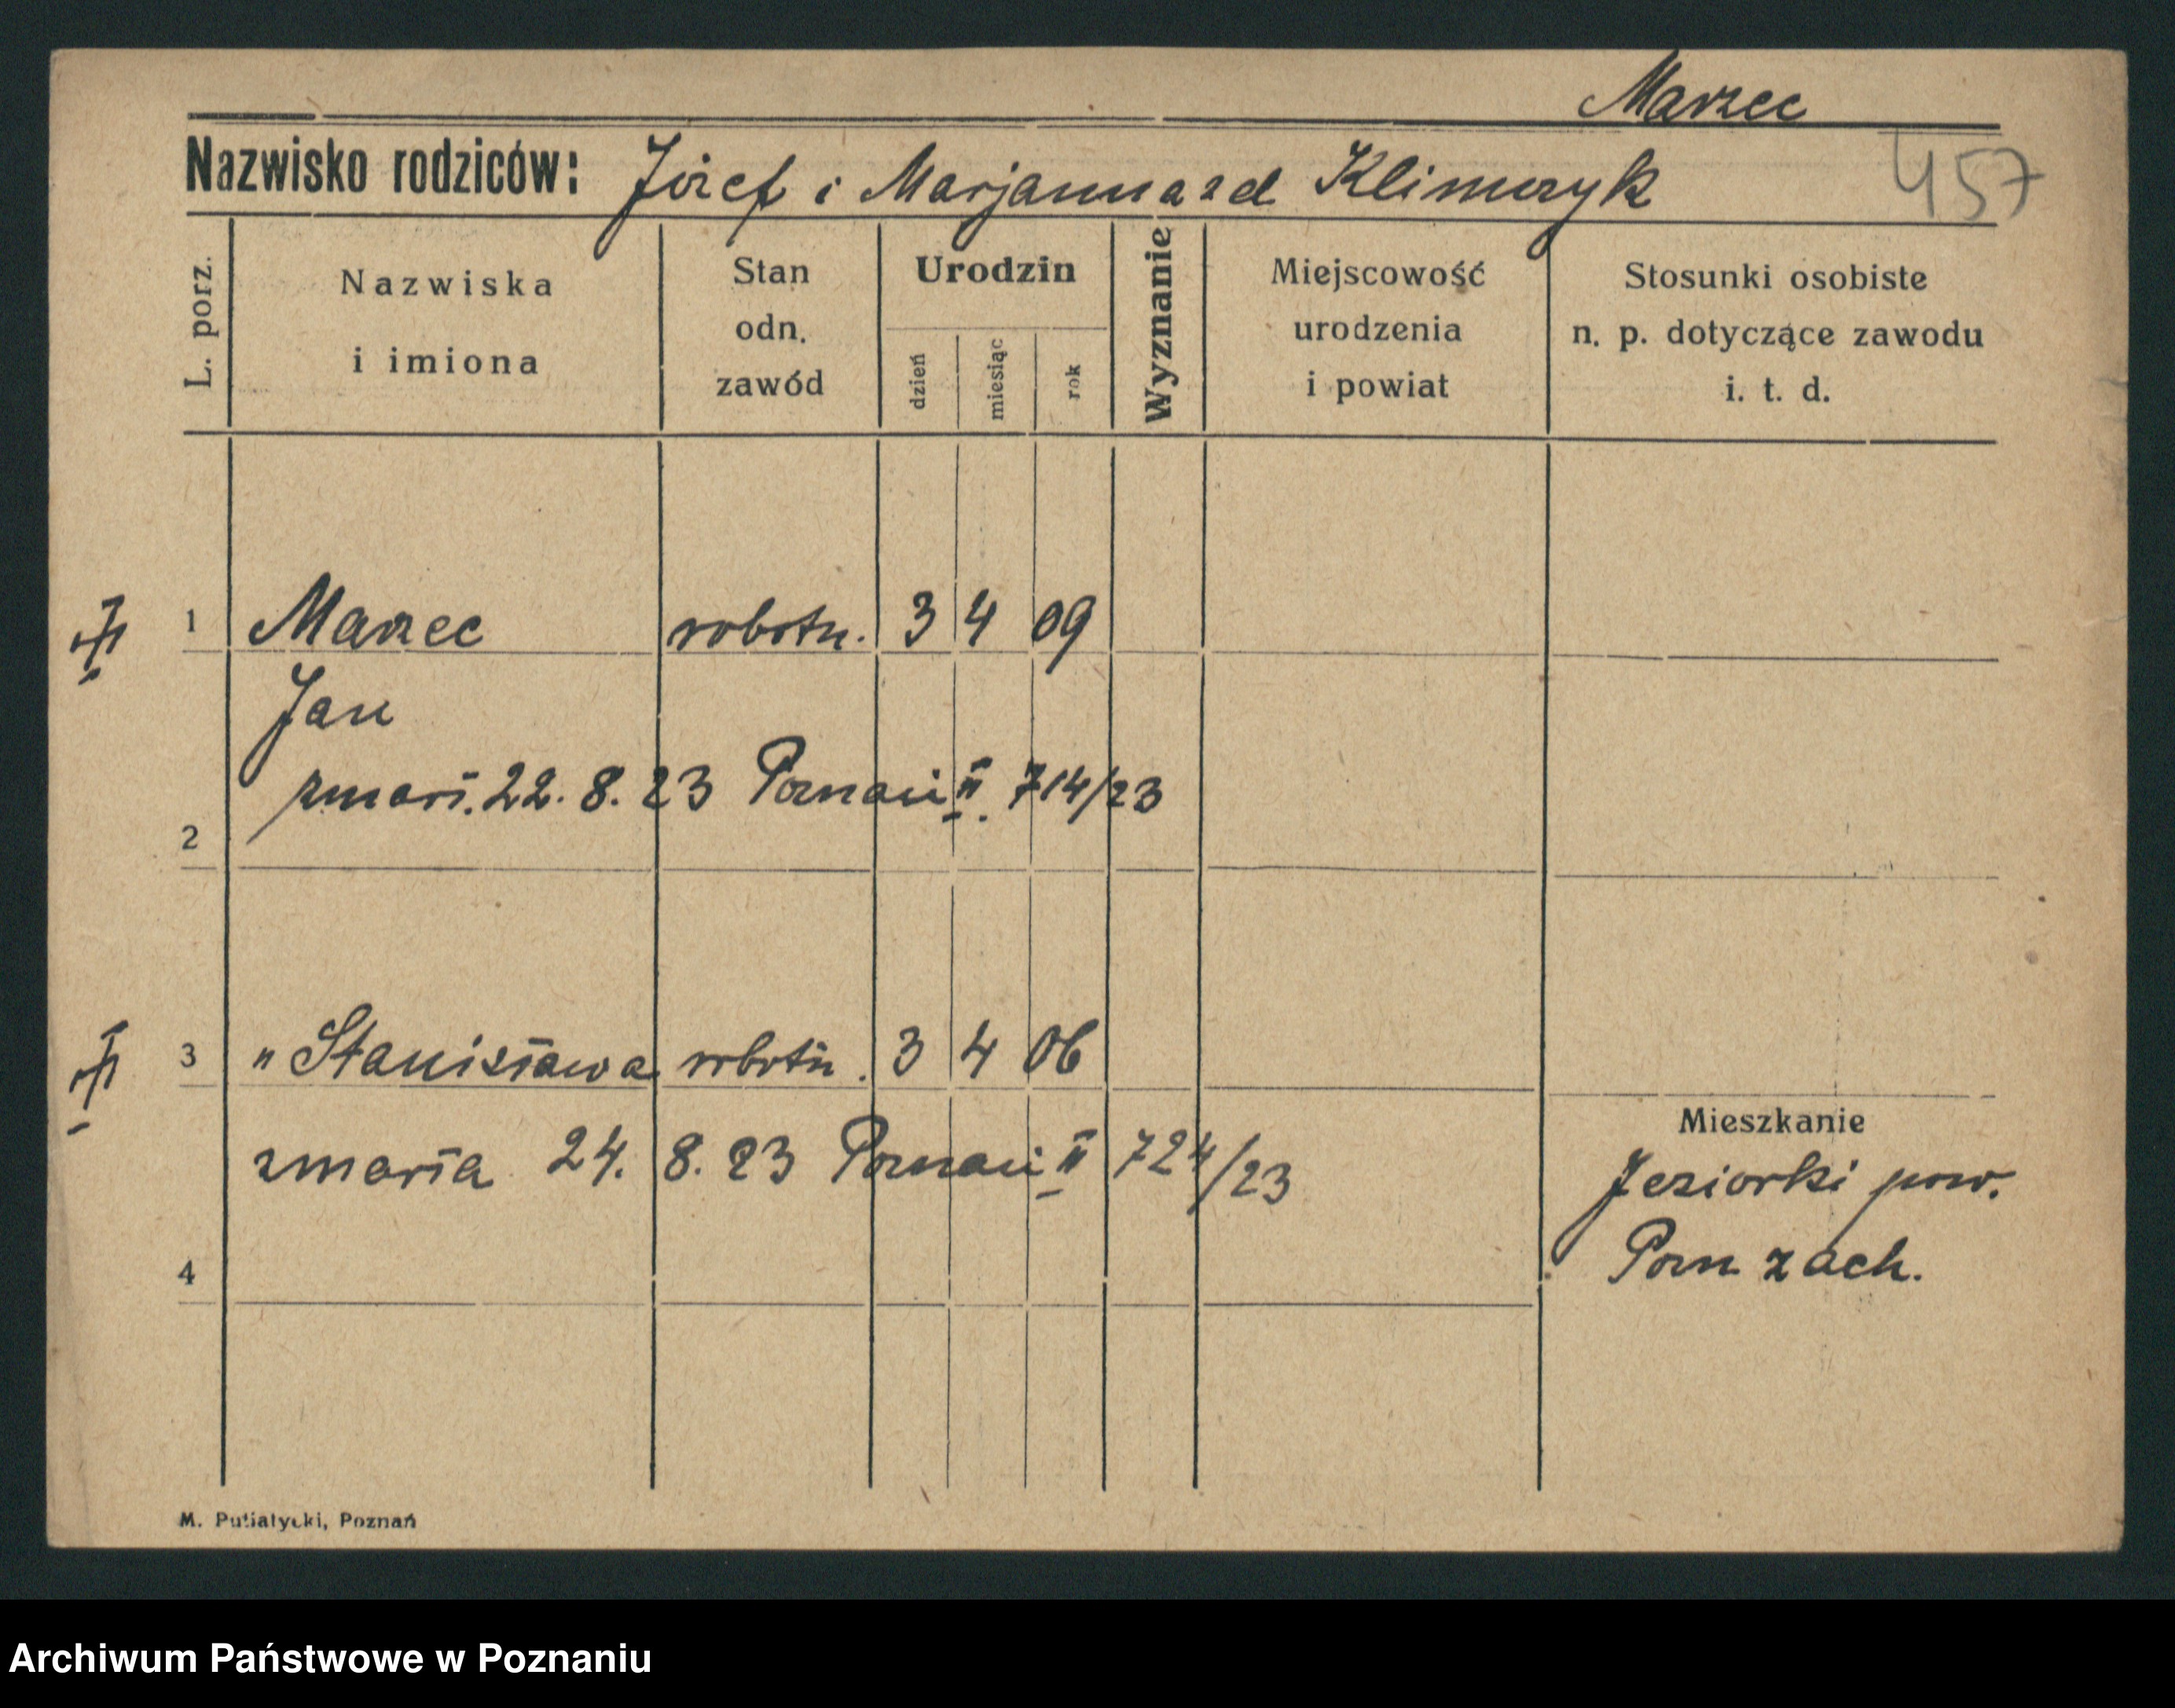 Marzec
Nazwisko rodziców: Józef i Marjanna zd Klimczyk 457
L. porz. Nazwiska i imiona Stan odn. zawód Urodzin dzień miesiąc rok Wyznanie Miejscowość urodzenia i powiat Stosunki osobiste n. p. dotyczące zawodu i. t. d.
1 Marzec robotn. 3 4 09
Jan
zmarł. 22. 8. 23 Poznań II. 714/23
2
3 " Stanisława robotn. 3 4 06
Mieszkanie
zmarła 24. 8. 23 Poznań II 724/23
Jeziorki pow.
Pozn zach.
4
M. Putiatycki, Poznań
Archiwum Państwowe w Poznaniu